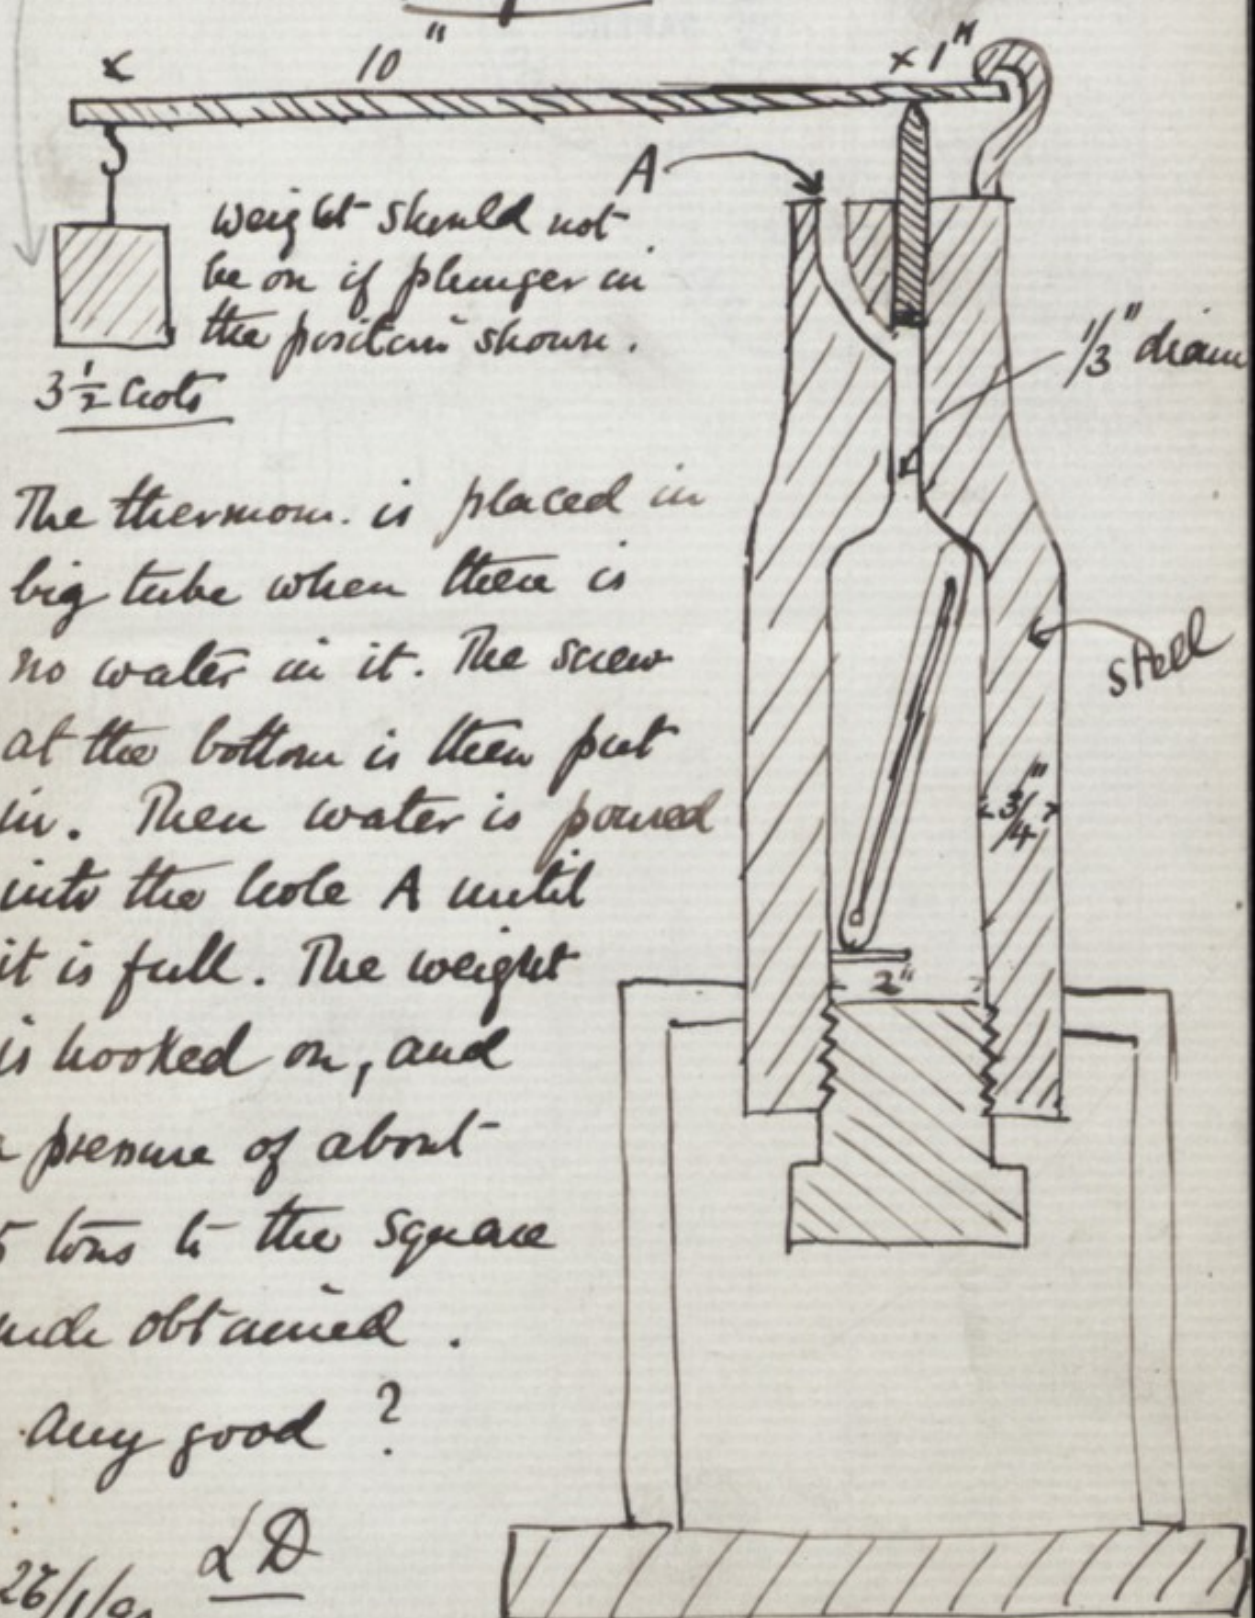 x 10" x 1"
A
weight should not
be on if plunger in
the position shown.
3½ cwts
1/3" diam
The thermom. is placed in
big tube when there is
no water in it. The screw
steel
at the bottom is then put
in. Then water is poured
3/4"
into the hole A until
it is full. The weight
2"
is hooked on, and
a pressure of about
5 tons to the square
inch obtained.
Any good?
LD